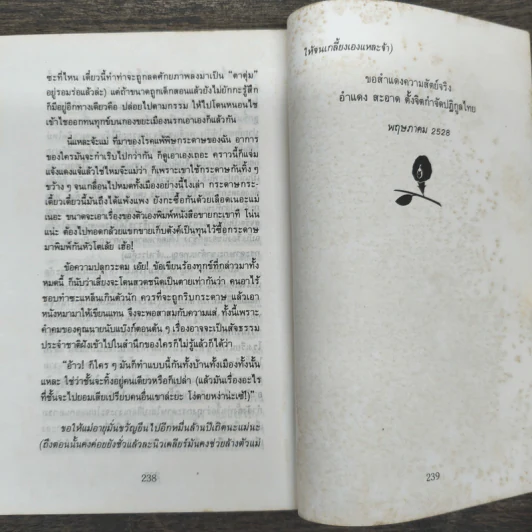 ซะที่ไหน เดี๋ยวนี้ทำท่าจะถูกลดศักยภาพลงมาเป็น "ตาตุ่ม"
อยู่รอมร่อแล้วล่ะ) แต่ถ้าขนาดถูกเด็กสอนแล้วยังไม่ยักกะรู้สึก
ก็มีอยู่อีกทางเดียวคือ ปล่อยไปตามกรรม ให้ไปโดนหนอนไช
เข้าไชออกทนทุกข์บนกองขยะเมืองนรกเอาเองก็แล้วกัน
นี่แหละจ้ะแม่ ที่มาของโรคแพ้พิษกระดาษของฉัน อาการ
ของใครมันจะกำเริบไปกว่ากัน ก็ดูเอาเองเถอะ คราวนี้ก็แจ่ม
แจ้งแดงแจ๋แล้วใช่ไหมจ๊ะแม่ว่า ก็เพราะเขาใช้กระดาษกันทิ้ง ๆ
ขว้าง ๆ จนเกลื่อนไปหมดทั้งเมืองอย่างนี้ไงเล่า กระดาษกระ-
เดี้ยวเดี๋ยวนี้มันถึงได้แพ้งแพง ยังกะซื้อกันด้วยเลือดเนอะแม่
เนอะ ขนาดจะเอาเรื่องของตัวเองพิมพ์หนังสือขายกะเขาที โน่น
แน่ะ ต้องไปทอดกล้วยแขกขายเก็บตังค์เป็นทุนไว้ซื้อกระดาษ
มาพิมพ์กันหัวโตเลย เฮ้อ!
ข้อความปลุกระดม เอ๊ย! ข้อเขียนร้องทุกข์ที่กล่าวมาทั้ง
หมดนี้ ก็นับว่าเสี่ยงจะโดนสวดชนิดเป็นตายเท่ากันว่า คนอาไร้
ชอบทำซะแหลินเกินตัวนัก ควรที่จะถูกริบกระดาษ แล้วเอา
หนังหมามาให้เขียนแทน จึงจะพอสาสมกับความแส่ ทั้งนี้เพราะ
คำคมของคุณนายนับแบ๊งก์ตอนต้น ๆ เรื่องอาจจะเป็นสัจธรรม
ประจำชาติฝังเข้าไปในสำนึกของใครก็ไม่รู้แล้วก็ได้ว่า
"อ้าว! ก็ใคร ๆ มันก็ทำแบบนี้กันทั้งบ้านทั้งเมืองทั้งนั้น
แหละ ใช่ว่าชั้นจะทิ้งอยู่คนเดียวหรือก็เปล่า (แล้วมันเรื่องอะไร
ที่ชั้นจะไปยอมเสียเปรียบคนอื่นเขาล่ะยะ โง่ตายหง่าน่ะเซ่!)"
ขอให้แม่อายุมั่นขวัญยืนไปอีกหมื่นล้านปีเถิดนะแม่นะ
(ถึงตอนนั้นคงค่อยยังชั่วแล้วละนิวเคลียร์มันคงช่วยล้างตัวแม่
238
ให้จนเกลี้ยงเองแหละจ้า)
ขอสำแดงความสัตย์จริง
อำแดง สะอาด ตั้งจิตกำจัดปฏิกูลไทย
พฤษภาคม 2528
239